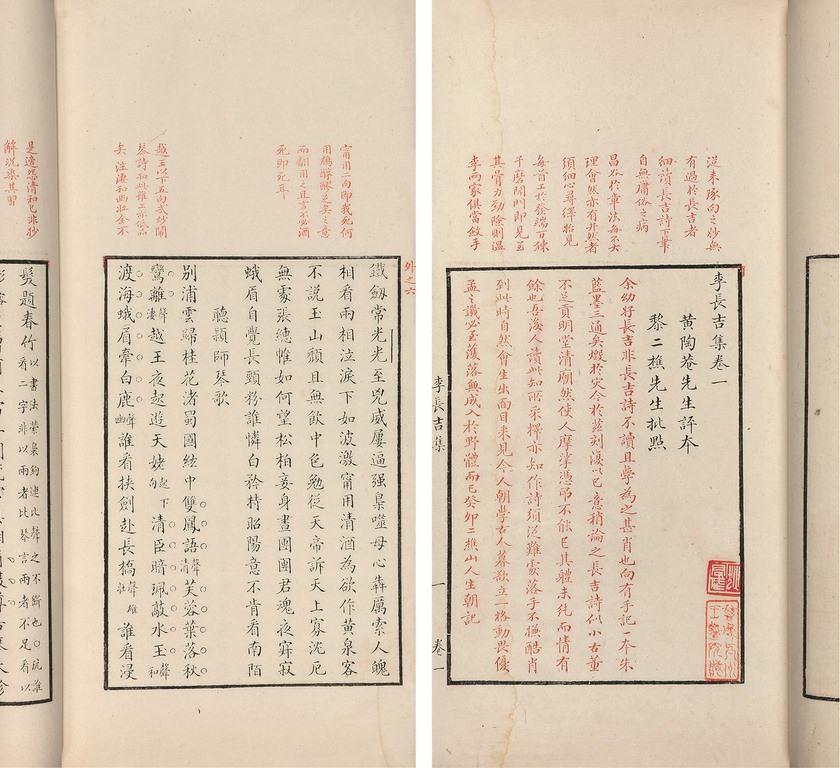 從來琢句之妙無
有過於長吉者
細讀長吉詩下筆
自無庸俗之病
昌谷於章法每不大
理會然亦有井然者
須細心尋繹始見
每首工於發端百鍊
千磨開門即見至
其骨力勁險則溫
李兩家俱當斂手
李長吉集卷一
黃陶菴先生評本
黎二樵先生批點
余幼好長吉非長吉詩不讀且學為之甚肖也向有手記一本朱
藍墨三通矣燬於灾今於茲刻復以己意稍論之長吉詩似小古董
不足貢明堂清廟然使人摩挲憑弔不能已其體未純而情有
餘也吾後人讀此知所采擇亦知作詩須從難處落手不撫酷肖
到此時自然會生出面目來見今人朝學古人暮欲立一格動畏優
孟之譏必至濩落無成入於野體而已癸卯二樵山人生朝記
李長吉集
卷一
一
外之六
甯用二句即我死何
用鴆醇醪足矣之意
而翻用之且言不必酒
死即死耳
越王以下五句
矣 注淒和幽壯全不
是遺忘清和也非抄
解沉染其習
鐵劒常光光至兇威屢逼强梟噬母心犇厲索人魄
相看兩相泣淚下如波激甯用清酒為欲作黃泉客
不說玉山頹且無飲中色勉從天帝訴天上寡沈厄
無處張繐帷如何望松柏妾身晝團團君魂夜寂寂
蛾眉自覺長頸粉誰憐白矜持昭陽意不肯看南陌
聽穎師琴歌
別浦雲歸桂花渚蜀國絃中雙鳳語清聲芙蓉葉落秋
鸞離淒聲越王夜起遊天姥起下句清臣暗珮敲水玉和聲
渡海蛾眉牽白鹿幽聲誰看挾劍赴長橋雄聲壯誰看浸
髮題春竹